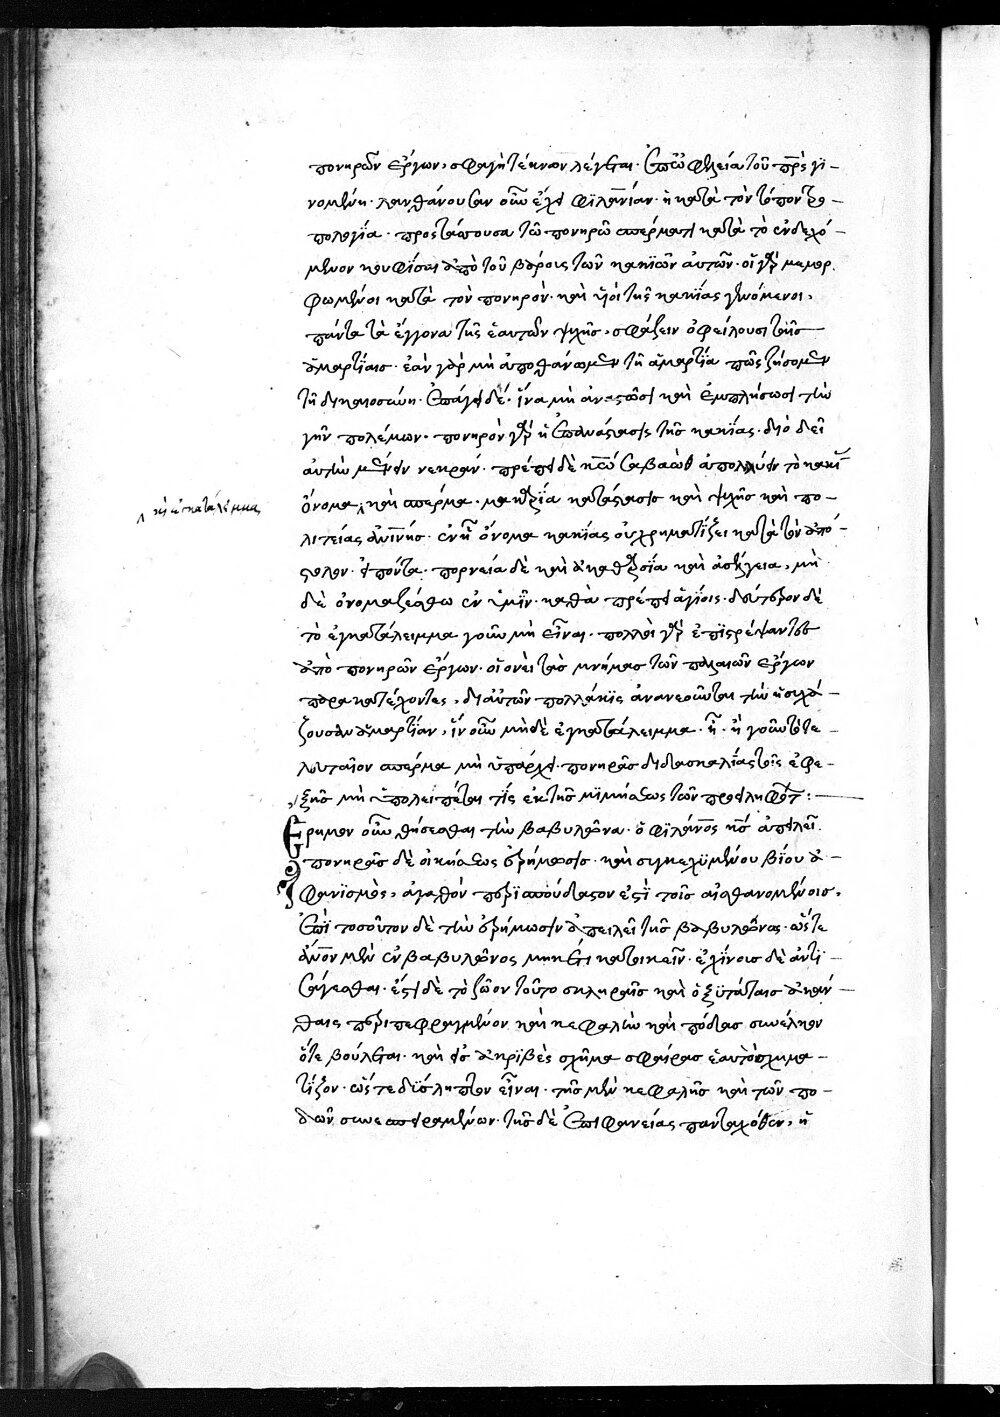 πονηρῶν ἔργων, σφαγὴ τέκνων λέγεται. ἐπ' ὠφελείᾳ τοῦ πρς γϊ-
νομένη. λανθάνουσαν οὖν ἔχει φιλανίαν. ἢ κατὰ τὸν τόπον τρο-
πολογία. προςτάττουσα τῶ πονηρῶ σπέρματι κατὰ τὸ ἐνδεχό-
μενον κουφίσαι ἀπὸ τοῦ βάρους τῶν κακϊῶν αὐτῶν. οἱ γὰρ μεμορ
φωμένοι κατὰ τὸν πονηρὸν. καὶ υἱοὶ τῆς κακίας γενόμενοι,
πάντα τὰ ἔγγονα τῆς ἑαυτῶν ψχῆς, σφάξειν ὀφείλουσι ταῖς
ἁμαρτίαις. ἐὰν γὰρ μὴ ἀποθάνωμεν τῆ ἁμαρτία πῶς ζήσομεν
τῆ δικαιοσύνη. ἐπάγει δέ. ἵνα μὴ ἀναστῶσι καὶ ἐμπλήσωσι τὴν
γῆν πολέμων. πονηρὸν γὰρ ἡ ἐπανάστασις τῆς κακίας. διὸ δεῖ
αὐτὴν μένειν νεκράν. πρέπει δὲ κω σαβαὼθ ἀπολλύειν τὸ κακ
ὄνομα, καὶ σπέρμα. μακαρία κατάστασις καὶ ψχῆς καὶ πο-
καὶ ἐγκατάλειμμα
λιτείας ἀνίνης. ἐν ἧ ὄνομα κακίας οὐ χρηματίζει κατὰ τὸν ἀπό-
στολον. εἰπόντα. πορνεία δὲ καὶ ἀκαθαρσία καὶ ἀσέλγεια, μὴ
δὲ ὀνομαζέσθω ἐν ὑμῖν. καθὰ πρέπει ἁγίοις. δεύτερον δὲ
τὸ ἐγκατάλειμμα γοῦν μὴ εἶναι. πολλοὶ γὰρ ἐπιστρέψαντες
ἀπὸ πονηρῶν ἔργων. οἱονεὶ τὰς μνήμας τῶν παλαιῶν ἔργων
παρακατέχοντες, δι αὐτῶν πολλάκις ἀνανεοῦνται τὴν ἡσυχά-
ζουσαν ἁμαρτίαν, ἵν οὖν μηδὲ ἐγκατάλειμμα. ἦ. ἢ γοῦν τὸ τε-
λευταῖον σπέρμα μὴ ὑπάρχει. πονηρᾶς διδασκαλίας τοῖς ἐφε-
ξῆς μὴ ὑπολειπέται τῆς ἐκ τῆς μιμήσεως τῶν προειληφότ:
Ἔρημον οὖν θήσεσθαι τὴν βαβυλῶνα. ὁ φιλάνος κς ἀπειλεῖ.
πονηρᾶς δὲ οἰκήσεως ἐρήμωσις. καὶ συγκεχυμένου βίου ἀ-
φανϊσμὸς, ἀγαθὸν περισπούδαστον ἐστὶ τοῖς αἰσθανομένοις,
ἐπὶ τοσοῦτον δὲ τὴν ἐρήμωσιν ἀπειλεῖ τῆς βαβυλῶνος. ὥστε
ἄνον μὲν ἐν βαβυλῶνος μηκέτι κατοικεῖν. ἐχίνοις δὲ ἀντι
σάγεσθαι. ἔστι δὲ τὸ ζῶον τοῦτο σκληραῖς καὶ ὀξυτάταις ἀκάν-
θαις περιπεφραγμένον, καὶ κεφαλὴν καὶ πόδας συνέλκον
ὅτε βούλεται. καὶ εἰς ἀκριβὲς σχῆμα σφαίρας ἑαυτὸ σχημα-
τίζον. ὥστε δϊάληπτον εἶναι. τῆς μὲν κεφαλῆς καὶ τῶν πο-
δῶν συνεσπειραμένων. τῆς δὲ ἐπιφανείας πανταχόθεν, ἢ